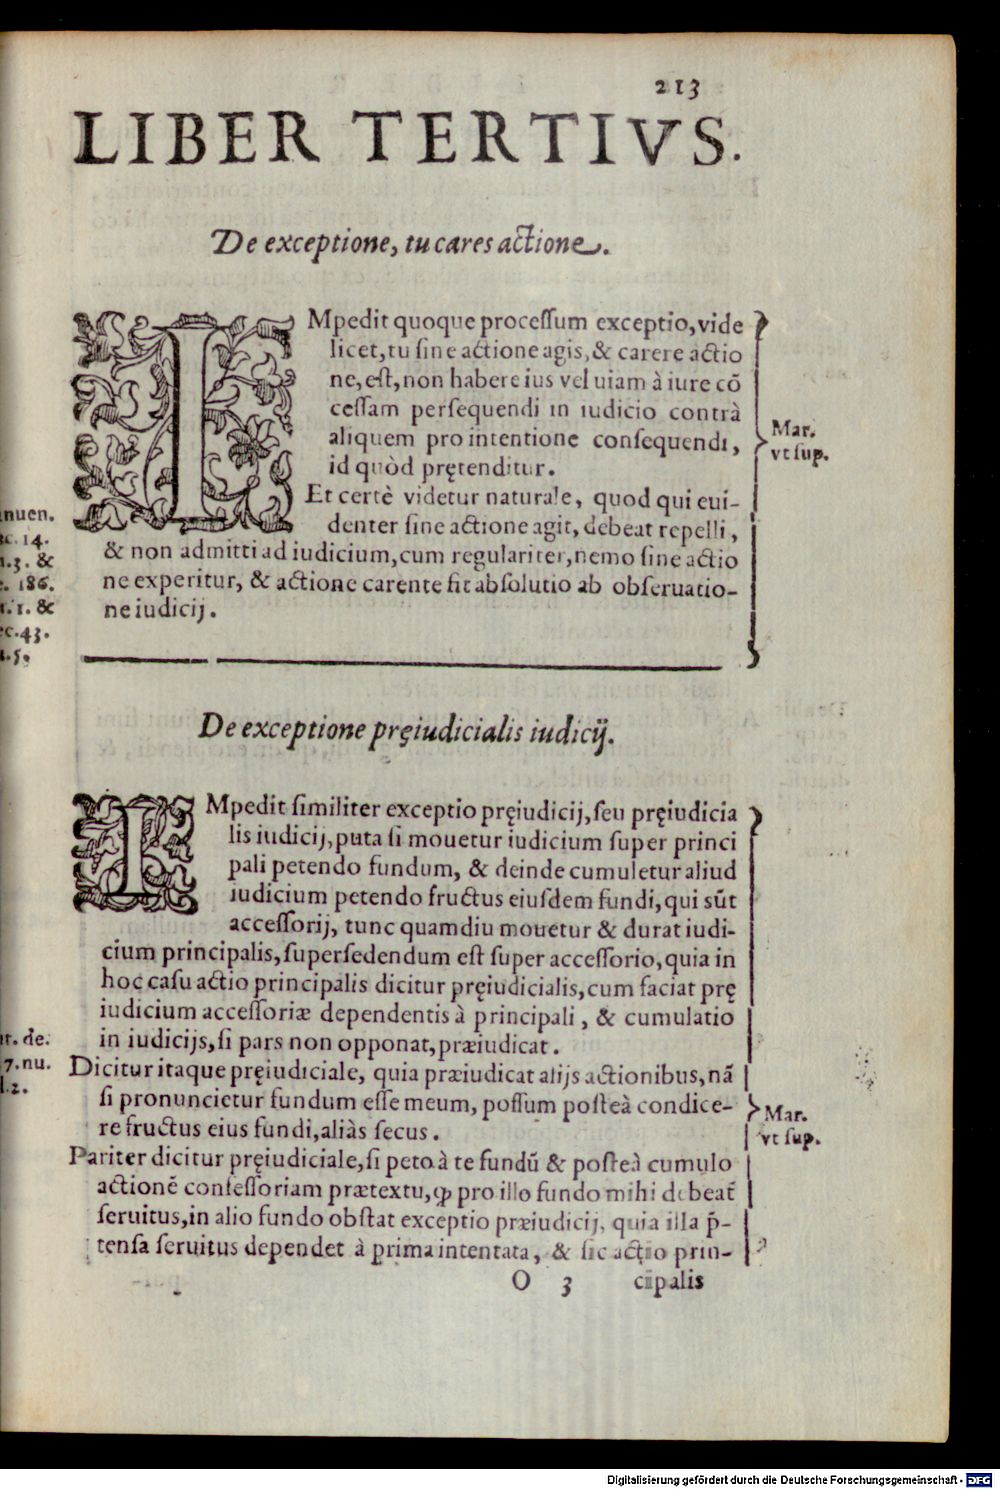 213
LIBER TERTIVS.
De exceptione, tu cares actione.
IMpedit quoque processum exceptio, vide
licet, tu sine actione agis, & carere actio
ne, est, non habere ius vel uiam à iure cõ
cessam persequendi in iudicio contrà
aliquem pro intentione consequendi,
id quòd prętenditur.
Mar.
vt sup.
Et certè videtur naturale, quod qui eui-
denter sine actione agit, debeat repelli,
& non admitti ad iudicium, cum regulariter, nemo sine actio
ne experitur, & actione carente fit absolutio ab obseruatio-
ne iudicij.
nuen.
ec. 14.
1.3. &
c. 186.
1. 1. &
ec. 43.
1. 5.
De exceptione pręiudicialis iudicij.
IMpedit similiter exceptio pręiudicij, seu pręiudicia
lis iudicij, puta si mouetur iudicium super princi
pali petendo fundum, & deinde cumuletur aliud
iudicium petendo fructus eiusdem fundi, qui sũt
accessorij, tunc quamdiu mouetur & durat iudi-
cium principalis, supersedendum est super accessorio, quia in
hoc casu actio principalis dicitur pręiudicialis, cum faciat prę
iudicium accessoriæ dependentis à principali, & cumulatio
in iudicijs, si pars non opponat, præiudicat.
Dicitur itaque pręiudiciale, quia præiudicat alijs actionibus, nã
si pronuncietur fundum esse meum, possum posteà condice-
re fructus eius fundi, aliàs secus.
ır. de.
7. nu.
l. 2.
Mar.
vt sup.
Pariter dicitur pręiudiciale, si peto à te fundũ & posteà cumulo
actionẽ confessoriam prætextu, ꝙ pro illo fundo mihi debeat
seruitus, in alio fundo obstat exceptio præiudicij, quia illa p̃-
tensa seruitus dependet à prima intentata, & sic actio prin-
O 3 cipalis
Digitalisierung gefördert durch die Deutsche Forschungsgemeinschaft - DFG